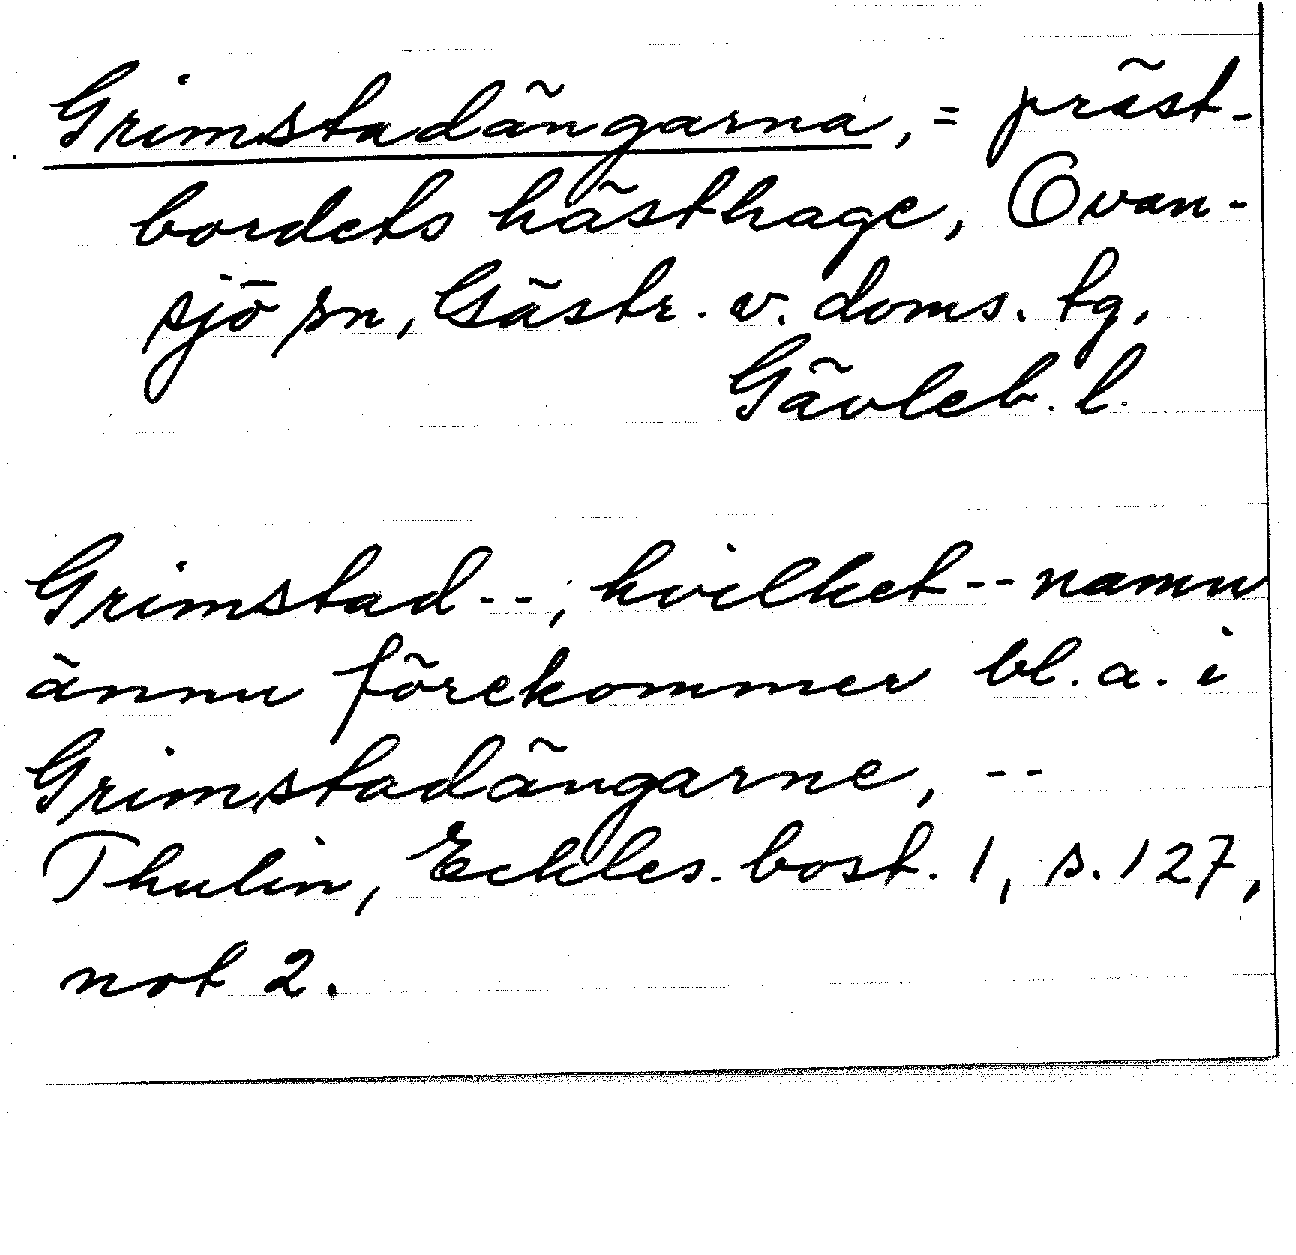 Grimstadängarna, = präst-
bordets hästhage, Ovan-
sjö sn, Gästr. v. doms. tg,
Gävleb. l.
Grimstad--, hvilket -- namn
ännu förekommer bl. a. i
Grimstadängarne, --
Thulin, Eckles. bost. 1, s. 127,
not 2.